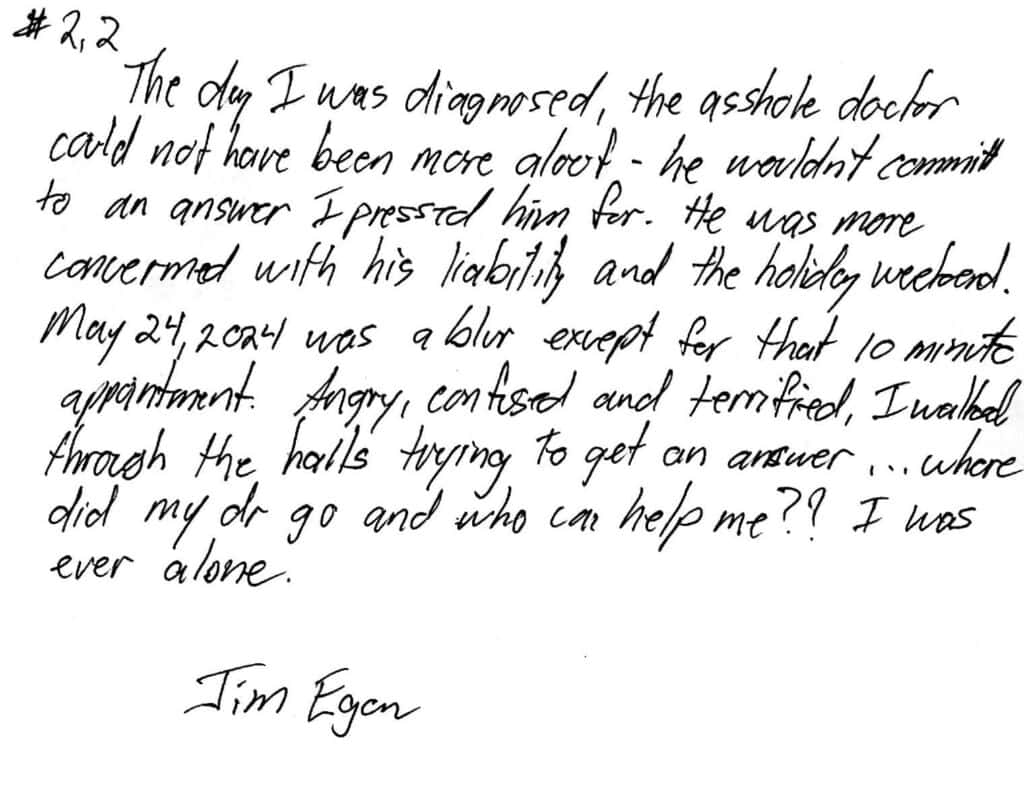 #2,2
The day I was diagnosed, the asshole doctor
could not have been more aloof - he wouldn't commit
to an answer I pressed him for. He was more
concerned with his liability and the holiday weekend.
May 24, 2024 was a blur except for that 10 minute
appointment. Angry, confused and terrified, I walked
through the halls trying to get an answer ... where
did my dr go and who can help me?? I was
ever alone.
Jim Egan